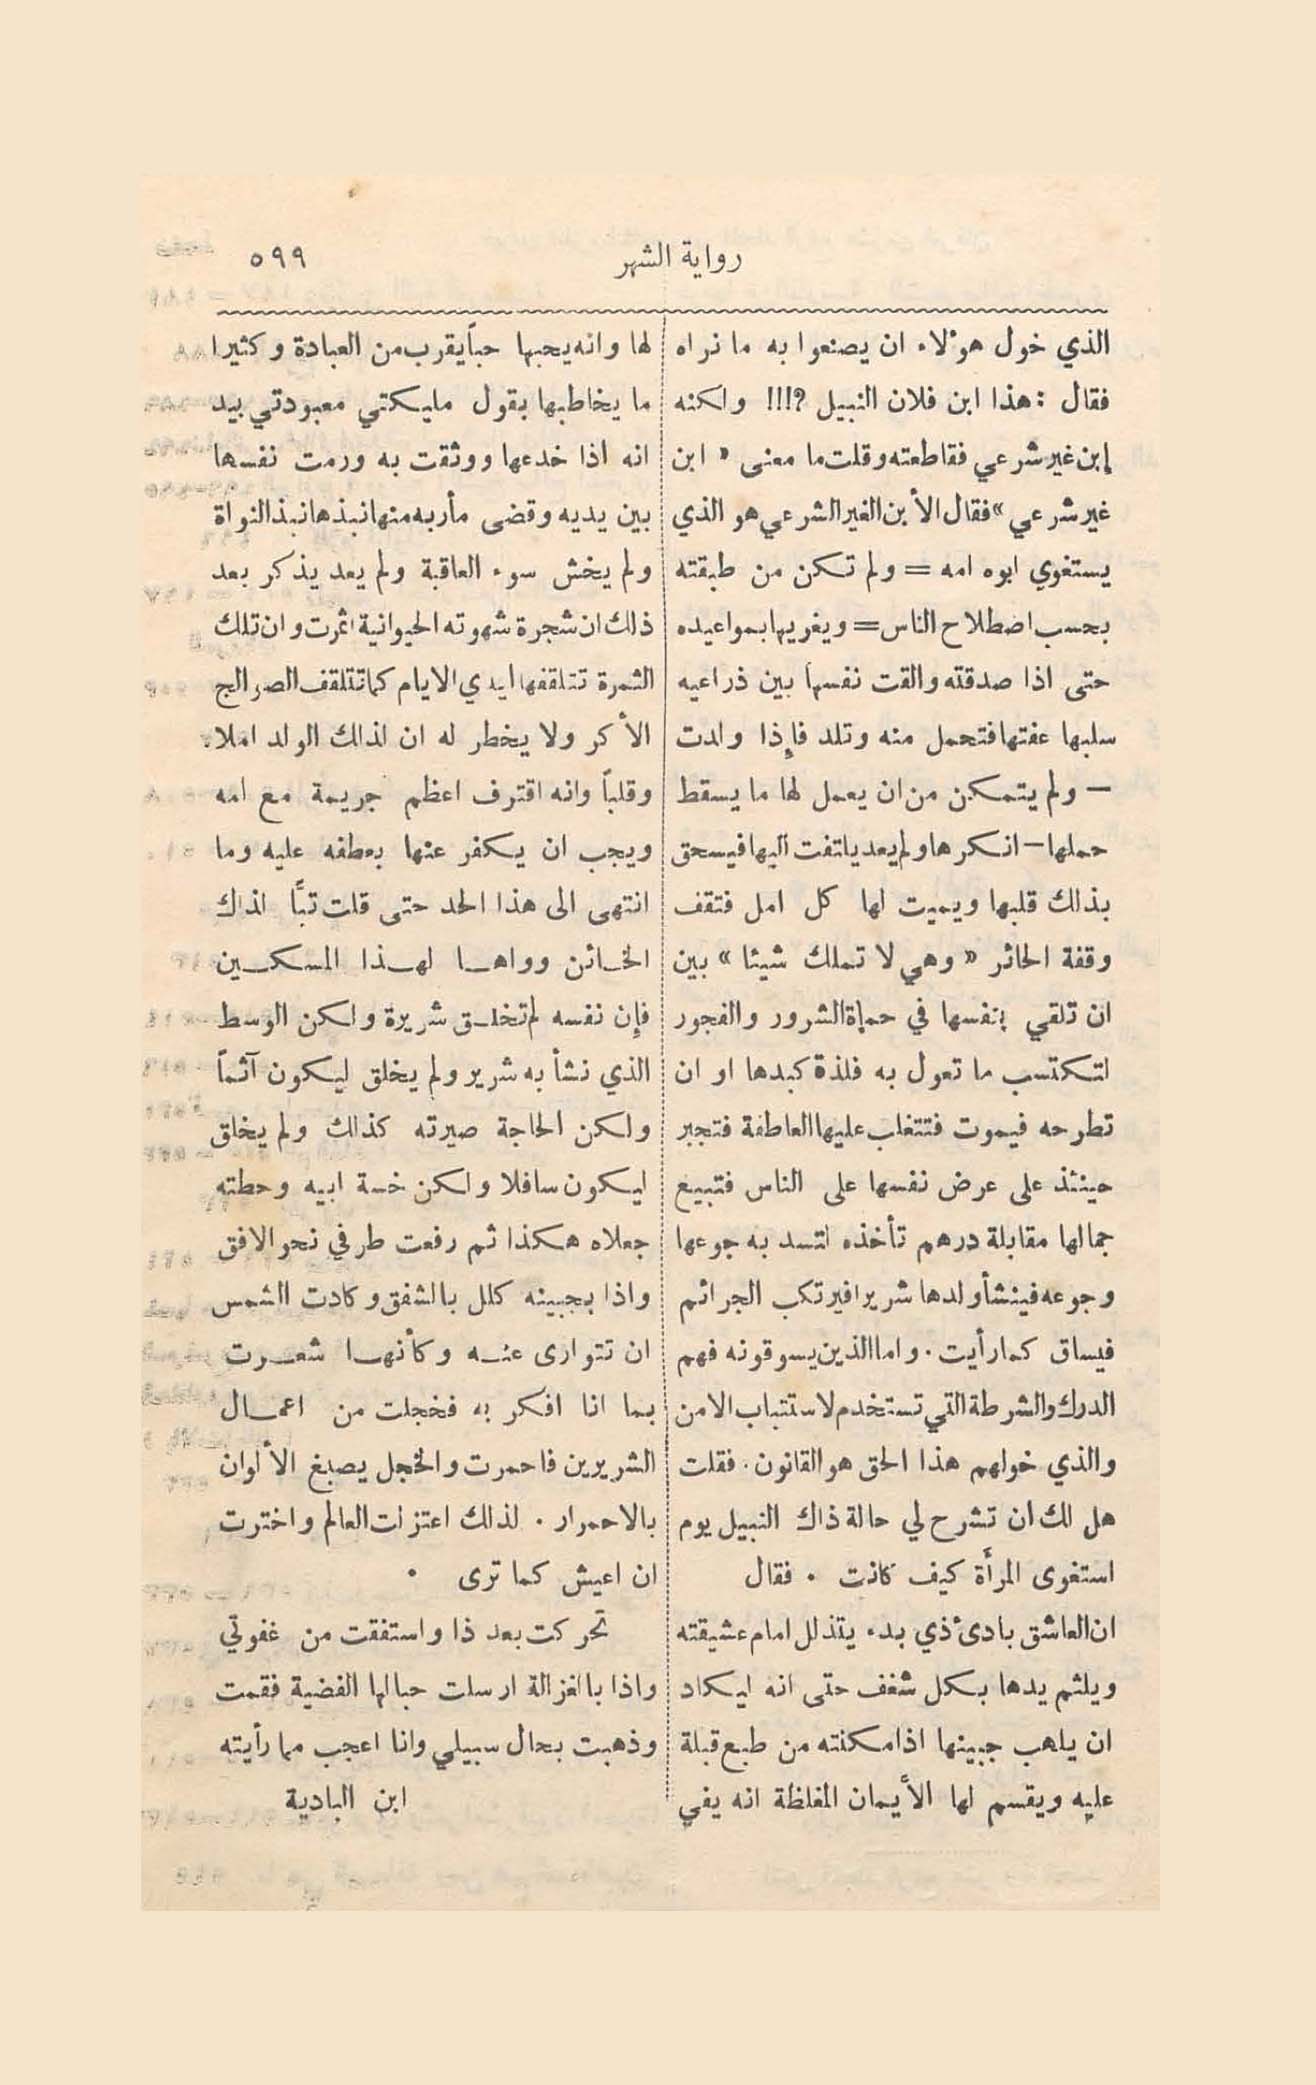 رواية الشهر
٥٩٩
الذي خول هوٴلاء ان يصنعوا به ما نراه
فقال : هذا ابن فلان النبيل ؟!!! ولكنه
إبن غير شرعي فقاطعته وقلت ما معنى « ابن
غير شرعي » فقال الأبن الغير الشرعي هو الذي
يستغوي ابوه امه = ولم تكن من طبقته
بحسب اصطلاح الناس = ويغريها بمواعيده
حتى اذا صدقته والقت نفسها بين ذراعيه
سلبها عفتها فتحمل منه وتلد فإذا ولدت
— ولم يتمكن من ان يعمل لها ما يسقط
حملها — انكرها ولم يعد يلتفت اليها فيسحق
بذلك قلبها ويميت لها كل امل فتقف
وقفة الحائر « وهي لا تملك شيئا » بين
ان تلقي بنفسها في حمأة الشرور والفجور
لتكتسب ما تعول به فلذة كبدها او ان
تطرحه فيموت فتتغلب عليها العاطفة فتجبر
حينئذ على عرض نفسها على الناس فتبيع
جمالها مقابلة درهم تأخذه لتسد به جوعها
وجوعه فينشأ ولدها شريرا فيرتكب الجرائم
فيساق كما رأيت . واما الذين يسوقونه فهم
الدرك والشرطة التي تستخدم لاستتباب الامن
والذي خولهم هذا الحق هو القانون . فقلت
هل لك ان تشرح لي حالة ذاك النبيل يوم
استغوى المرأة كيف كانت . فقال
ان العاشق بادئ ذي بدء يتذلل امام عشيقته
ويلثم يدها بكل شغف حتى انه ليكاد
ان يلهب جبينها اذا مكنته من طبع قبلة
عليه ويقسم لها الأيمان المغلظة انه يفي
لها وانه يحبها حباً يقرب من العبادة وكثيرا
ما يخاطبها بقول مليكتي معبودتي بيد
انه اذا خدعها ووثقت به ورمت نفسها
بين يديه وقضى مأربه منها نبذها نبذ النواة
ولم يخش سوء العاقبة ولم يعد يذكر بعد
ذلك ان شجرة شهوته الحيوانية اثمرت وان تلك
الثمرة تتلقفها ايدي الايام كما تتلقف الصوالج
الأكر ولا يخطر له ان لذلك الولد املاء
وقلباً وانه اقترف اعظم جريمة مع امه
ويجب ان يكفر عنها بعطفه عليه وما
انتهى الى هذا الحد حتى قلت تبًّا لذاك
الخائن وواها لهذا المسكين
فإن نفسه لم تخلق شريرة ولكن الوسط
الذي نشأ به شرير ولم يخلق ليكون آثماً
ولكن الحاجة صيرته كذلك ولم يخلق
ليكون سافلا ولكن خسة ابيه وحطته
جعلاه هكذا ثم رفعت طرفي نحو الافق
واذا بجبينه كلل بالشفق وكادت الشمس
ان تتوارى عنه وكأنها شعرت
بما انا افكر به فخجلت من اعمال
الشريرين فاحمرت والخجل يصبغ الألوان
بالاحمرار . لذلك اعتزلت العالم واخترت
ان اعيش كما ترى .
تحركت بعد ذا واستفقت من غفوتي
واذا بالغزالة ارسلت حبالها الفضية فقمت
وذهبت بحال سبيلي وانا اعجب مما رأيته
ابن البادية